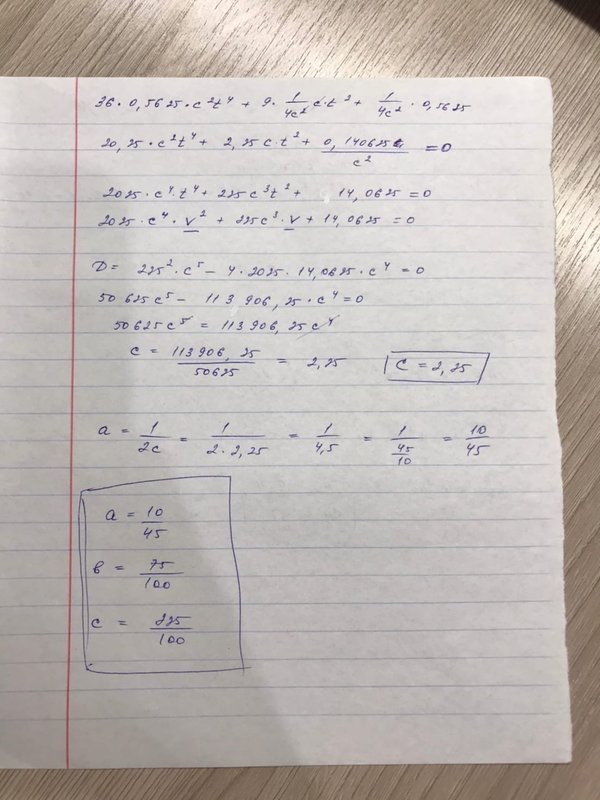 36 · 0,5625 · c²t⁴ + 9 · 1/4c² c · t² + 1/4c² · 0,5625
20,25 · c²t⁴ + 2,25 c · t² + 0,140625/c² = 0
2025 · c⁴ · t⁴ + 225 c³ t² + 14,0625 = 0
2025 · c⁴ · v² + 225 c³ · v + 14,0625 = 0
D = 225² · c⁵ − 4 · 2025 · 14,0625 · c⁴ = 0
50625 c⁵ − 113 906, 25 · c⁴ = 0
50625 c⁵ = 113906, 25 c⁴
c = 113906, 25/50625 = 2,25 c = 2,25
a = 1/2c = 1/2 · 2,25 = 1/4,5 = 1/45/10 = 10/45
a = 10/45
b = 75/100
c = 225/100